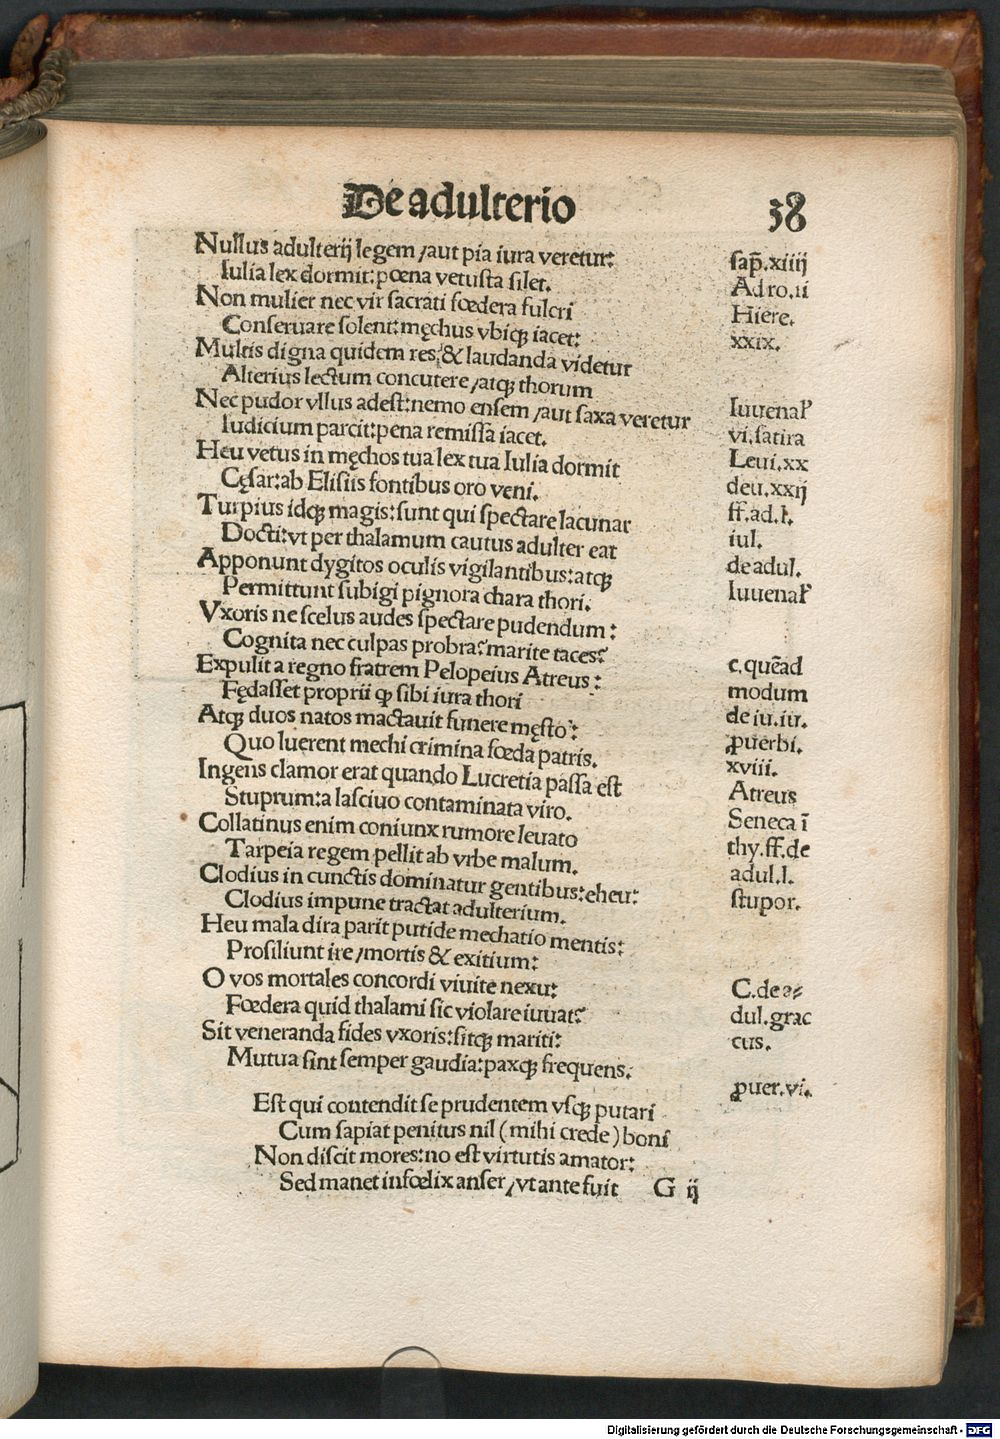 De adulterio
38
Nullus adulterij legem /aut pia iura veretur:
Iulia lex dormit: pœna vetusta silet.
Non mulier nec vir sacrati fœdera fulcri
Conseruare solent: męchus vbiqꝫ iacet:
Multis digna quidem res, & laudanda videtur
Alterius lectum concutere /atqꝫ thorum
Nec pudor vllus adest: nemo ensem /aut saxa veretur
Iudicium parcit: pena remissa iacet.
Heu vetus in męchos tua lex tua Iulia dormit
Cęsar: ab Elisiis fontibus oro veni.
Turpius idqꝫ magis: sunt qui spectare lacunar
Docti: vt per thalamum cautus adulter eat
Apponunt dygitos oculis vigilantibus: atqꝫ
Permittunt subigi pignora chara thori.
Vxoris ne scelus audes spectare pudendum:
Cognita nec culpas probra? marite taces?
Expulit a regno fratrem Pelopeius Atreus:
Fędasset proprii ꝙ sibi iura thori
Atqꝫ duos natos mactauit funere męsto:
Quo luerent mechi crimina fœda patris.
Ingens clamor erat quando Lucretia passa est
Stuprum: a lasciuo contaminata viro.
Collatinus enim coniunx rumore leuato
Tarpeia regem pellit ab vrbe malum.
Clodius in cunctis dominatur gentibus: eheu:
Clodius impune tractat adulterium.
Heu mala dira parit putide mechatio mentis:
Prosiliunt ire /mortis & exitium:
O vos mortales concordi viuite nexu:
Fœdera quid thalami sic violare iuuat?
Sit veneranda fides vxoris: sitqꝫ mariti:
Mutua sint semper gaudia: paxqꝫ frequens.
Est qui contendit se prudentem vsqꝫ putari
Cum sapiat penitus nil (mihi crede) boni
Non discit mores: no est virtutis amator:
Sed manet infœlix anser /vt ante fuit
G ij
sap̄. xiiij
Ad ro. ii
Hiere.
xxix.
Iuuenal̕
vi. satira
Leui. xx
deu. xxij
ff. ad. l.
iul.
de adul.
Iuuenal̕
c. quēad
modum
de iu. iu.
ꝓuerbi.
xviii.
Atreus
Seneca ī
thy. ff. de
adul. l.
stupor.
C. de a⸗
dul. grac
cus.
ꝓuer. vi.
Digitalisierung gefördert durch die Deutsche Forschungsgemeinschaft - DFG